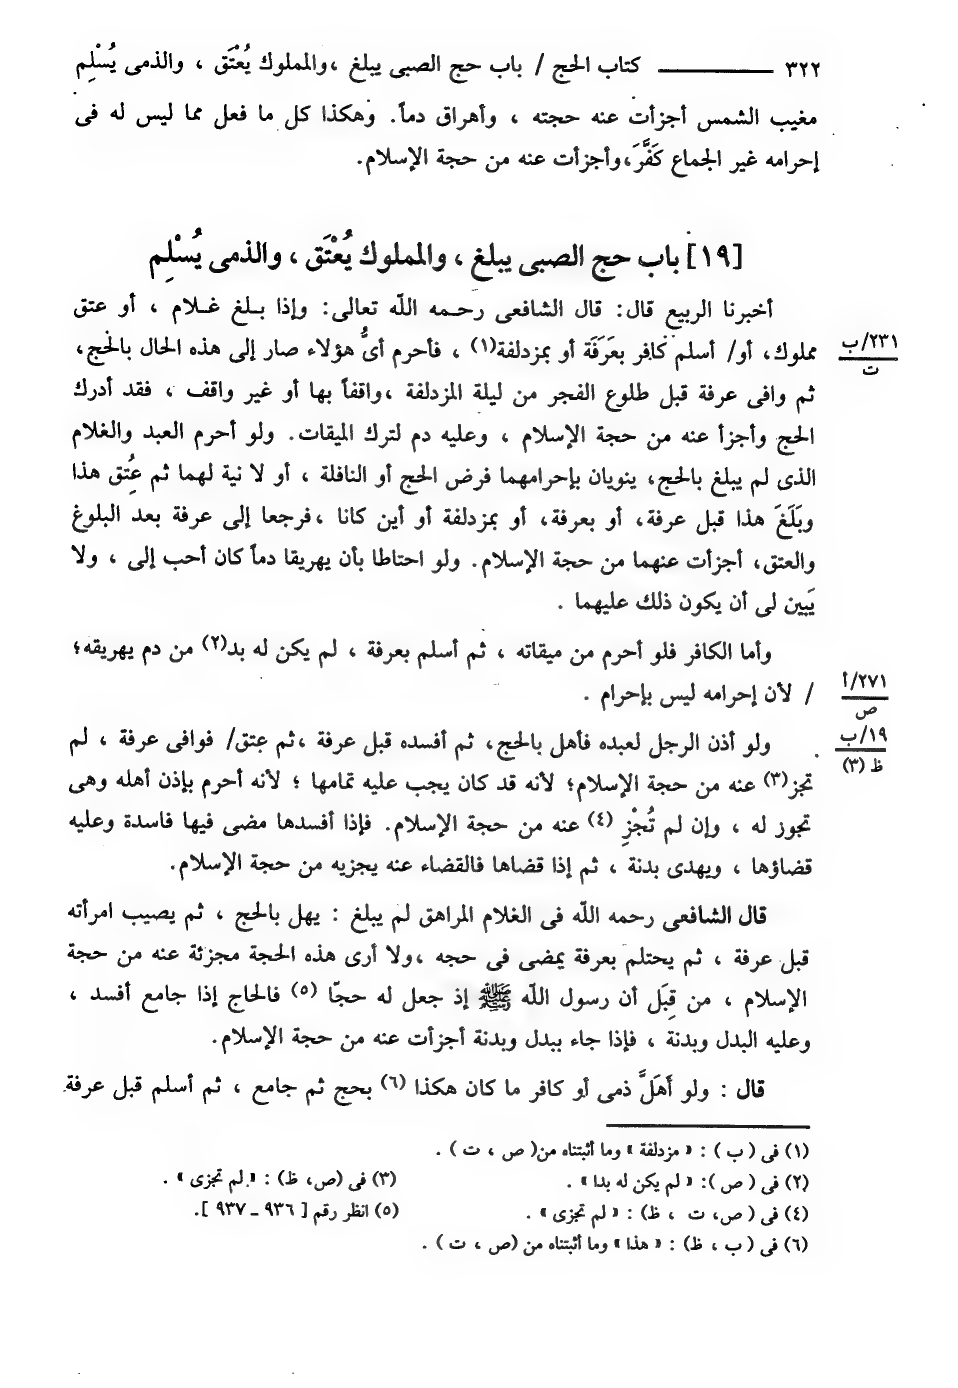 ٣٢٢ ــــــــ كتاب الحج / باب حج الصبى يبلغ ، والمملوك يُعْتَق ، والذمى يُسْلِم
مغيب الشمس أجزأت عنه حجته ، وأهراق دماً. وهكذا كل ما فعل مما ليس له فى
إحرامه غير الجماع كَفَّرَ، وأجزأت عنه من حجة الإسلام.
[١٩] باب حج الصبى يبلغ ، والمملوك يُعْتَق ، والذمى يُسْلِم
أخبرنا الربيع قال: قال الشافعى رحمه اللّه تعالى: وإذا بلغ غلام ، أو عتق
مملوك، أو/ أسلم كافر بعَرَفَة أو بمزدلفة(١) ، فأحرم أىُّ هؤلاء صار إلى هذه الحال بالحج،
٢٣١/ب
ت
ثم وافى عرفة قبل طلوع الفجر من ليلة المزدلفة ،واقفاً بها أو غير واقف ، فقد أدرك
الحج وأجزأ عنه من حجة الإسلام ، وعليه دم لترك الميقات. ولو أحرم العبد والغلام
الذى لم يبلغ بالحج، ينويان بإحرامهما فرض الحج أو النافلة ، أو لا نية لهما ثم عُتِق هذا
وبَلَغَ هذا قبل عرفة، أو بعرفة، أو بمزدلفة أو أين كانا ،فرجعا إلى عرفة بعد البلوغ
والعتق، أجزأت عنهما من حجة الإسلام. ولو احتاطا بأن يهريقا دماً كان أحب إلى ، ولا
يَبِين لى أن يكون ذلك عليهما .
وأما الكافر فلو أحرم من ميقاته ، ثم أسلم بعرفة ، لم يكن له بد(٢) من دم يهريقه؛
/ لأن إحرامه ليس بإحرام .
٢٧١/أ
ص
ولو أذن الرجل لعبده فأهل بالحج، ثم أفسده قبل عرفة ،ثم عتق/ فوافى عرفة ، لم
١٩/ب
ظ (٣)
تجز(٣) عنه من حجة الإسلام؛ لأنه قد كان يجب عليه تمامها ؛ لأنه أحرم بإذن أهله وهى
تجوز له ، وإن لم تُجْزِ (٤) عنه من حجة الإسلام. فإذا أفسدها مضى فيها فاسدة وعليه
قضاؤها ، ويهدى بدنة ، ثم إذا قضاها فالقضاء عنه يجزيه من حجة الإسلام.
قال الشافعى رحمه اللّه فى الغلام المراهق لم يبلغ : يهل بالحج ، ثم يصيب امرأته
قبل عرفة ، ثم يحتلم بعرفة يمضى فى حجه ،ولا أرى هذه الحجة مجزئة عنه من حجة
الإسلام ، من قِبَل أن رسول اللّه ﷺ إذ جعل له حجّا (٥) فالحاج إذا جامع أفسد ،
وعليه البدل وبدنة ، فإذا جاء ببدل وبدنة أجزأت عنه من حجة الإسلام.
قال : ولو أَهَلَّ ذمى أو كافر ما كان هكذا (٦) بحج ثم جامع ، ثم أسلم قبل عرفة
(١) فى ( ب ) : « مزدلفة » وما أثبتناه من( ص ، ت ) .
(٢) فى ( ص ): « لم يكن له بدا » . (٣) فى (ص، ظ) : « لم تجزى » .
(٤) فى ( ص، ت ، ظ) : « لم تجزى » . (٥) انظر رقم [ ٩٣٦ ـ ٩٣٧ ].
(٦) فى ( ب ، ظ) : « هذا » وما أثبتناه من (ص ، ت ) .